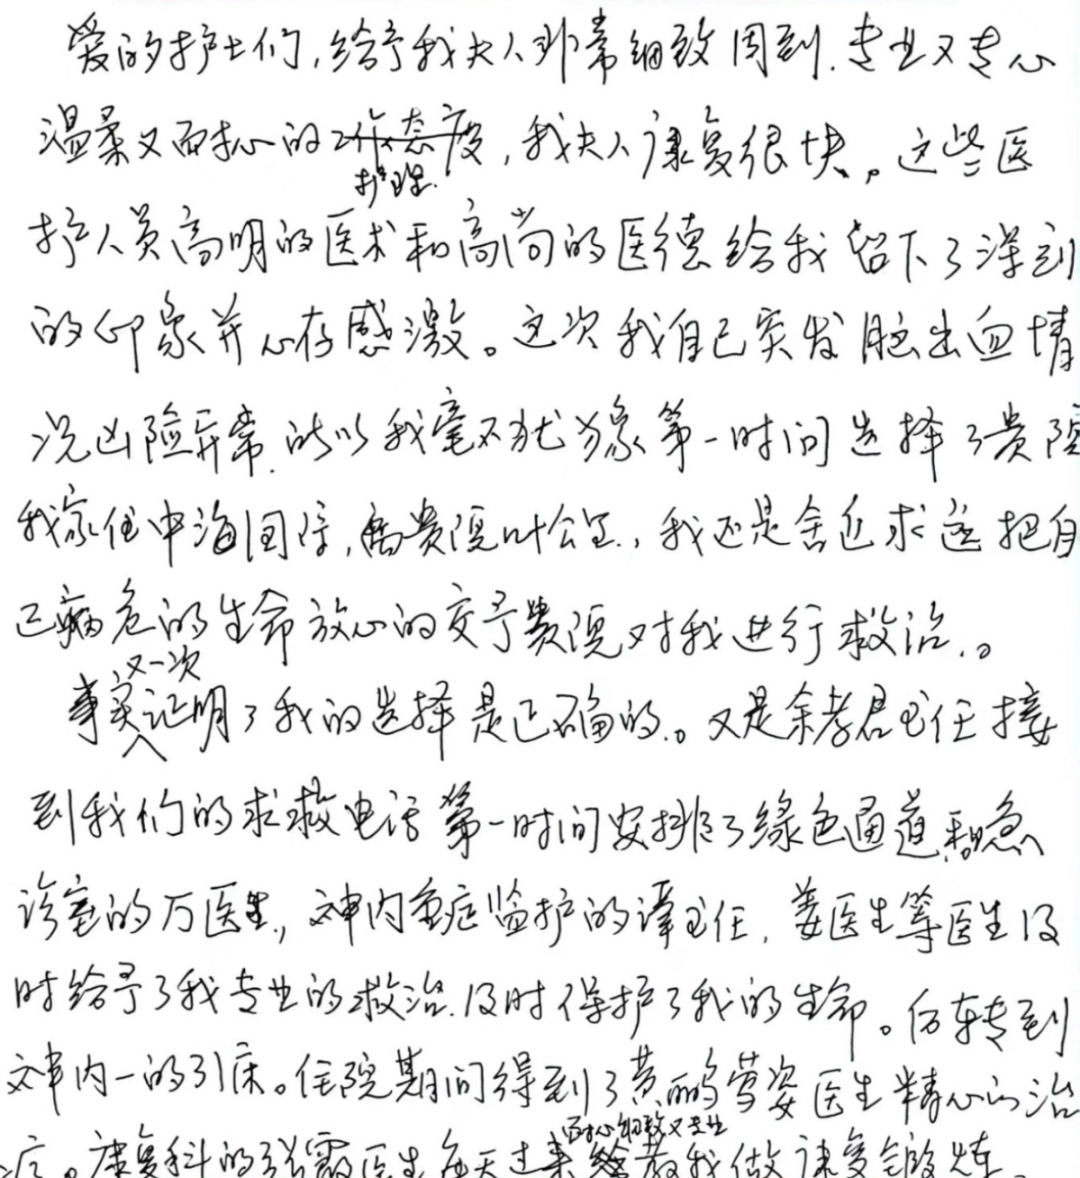 爱的护士们,给予我夫人非常细致周到.专业又专心
温柔又耐心的工作态度,我夫人康复很快。这些医
护理.
护人员高明的医术和高尚的医德给我留下了深刻
的印象并心存感激。这次我自己突发脑出血情
况凶险异常.所以我毫不犹豫第一时间选择了贵院
我家住中海国际,离贵院叶公里.,我还是舍近求远把自
己病危的生命放心的交予贵院对我进行救治.。
又一次
事实证明了我的选择是正确的.。又是余孝君主任接
到我们的求救电话第一时间安排了绿色通道和急
诊室的万医生,神内重症监护的谭主任.姜医生等医生及
时给予了我专业的救治.及时保护了我的生命。后转到
神内一的31床。住院期间得到了黄丽莺姿医生精心的治
耐心细致又专业
疗。康复科的张霞医生每天过来给教我做康复锻炼。